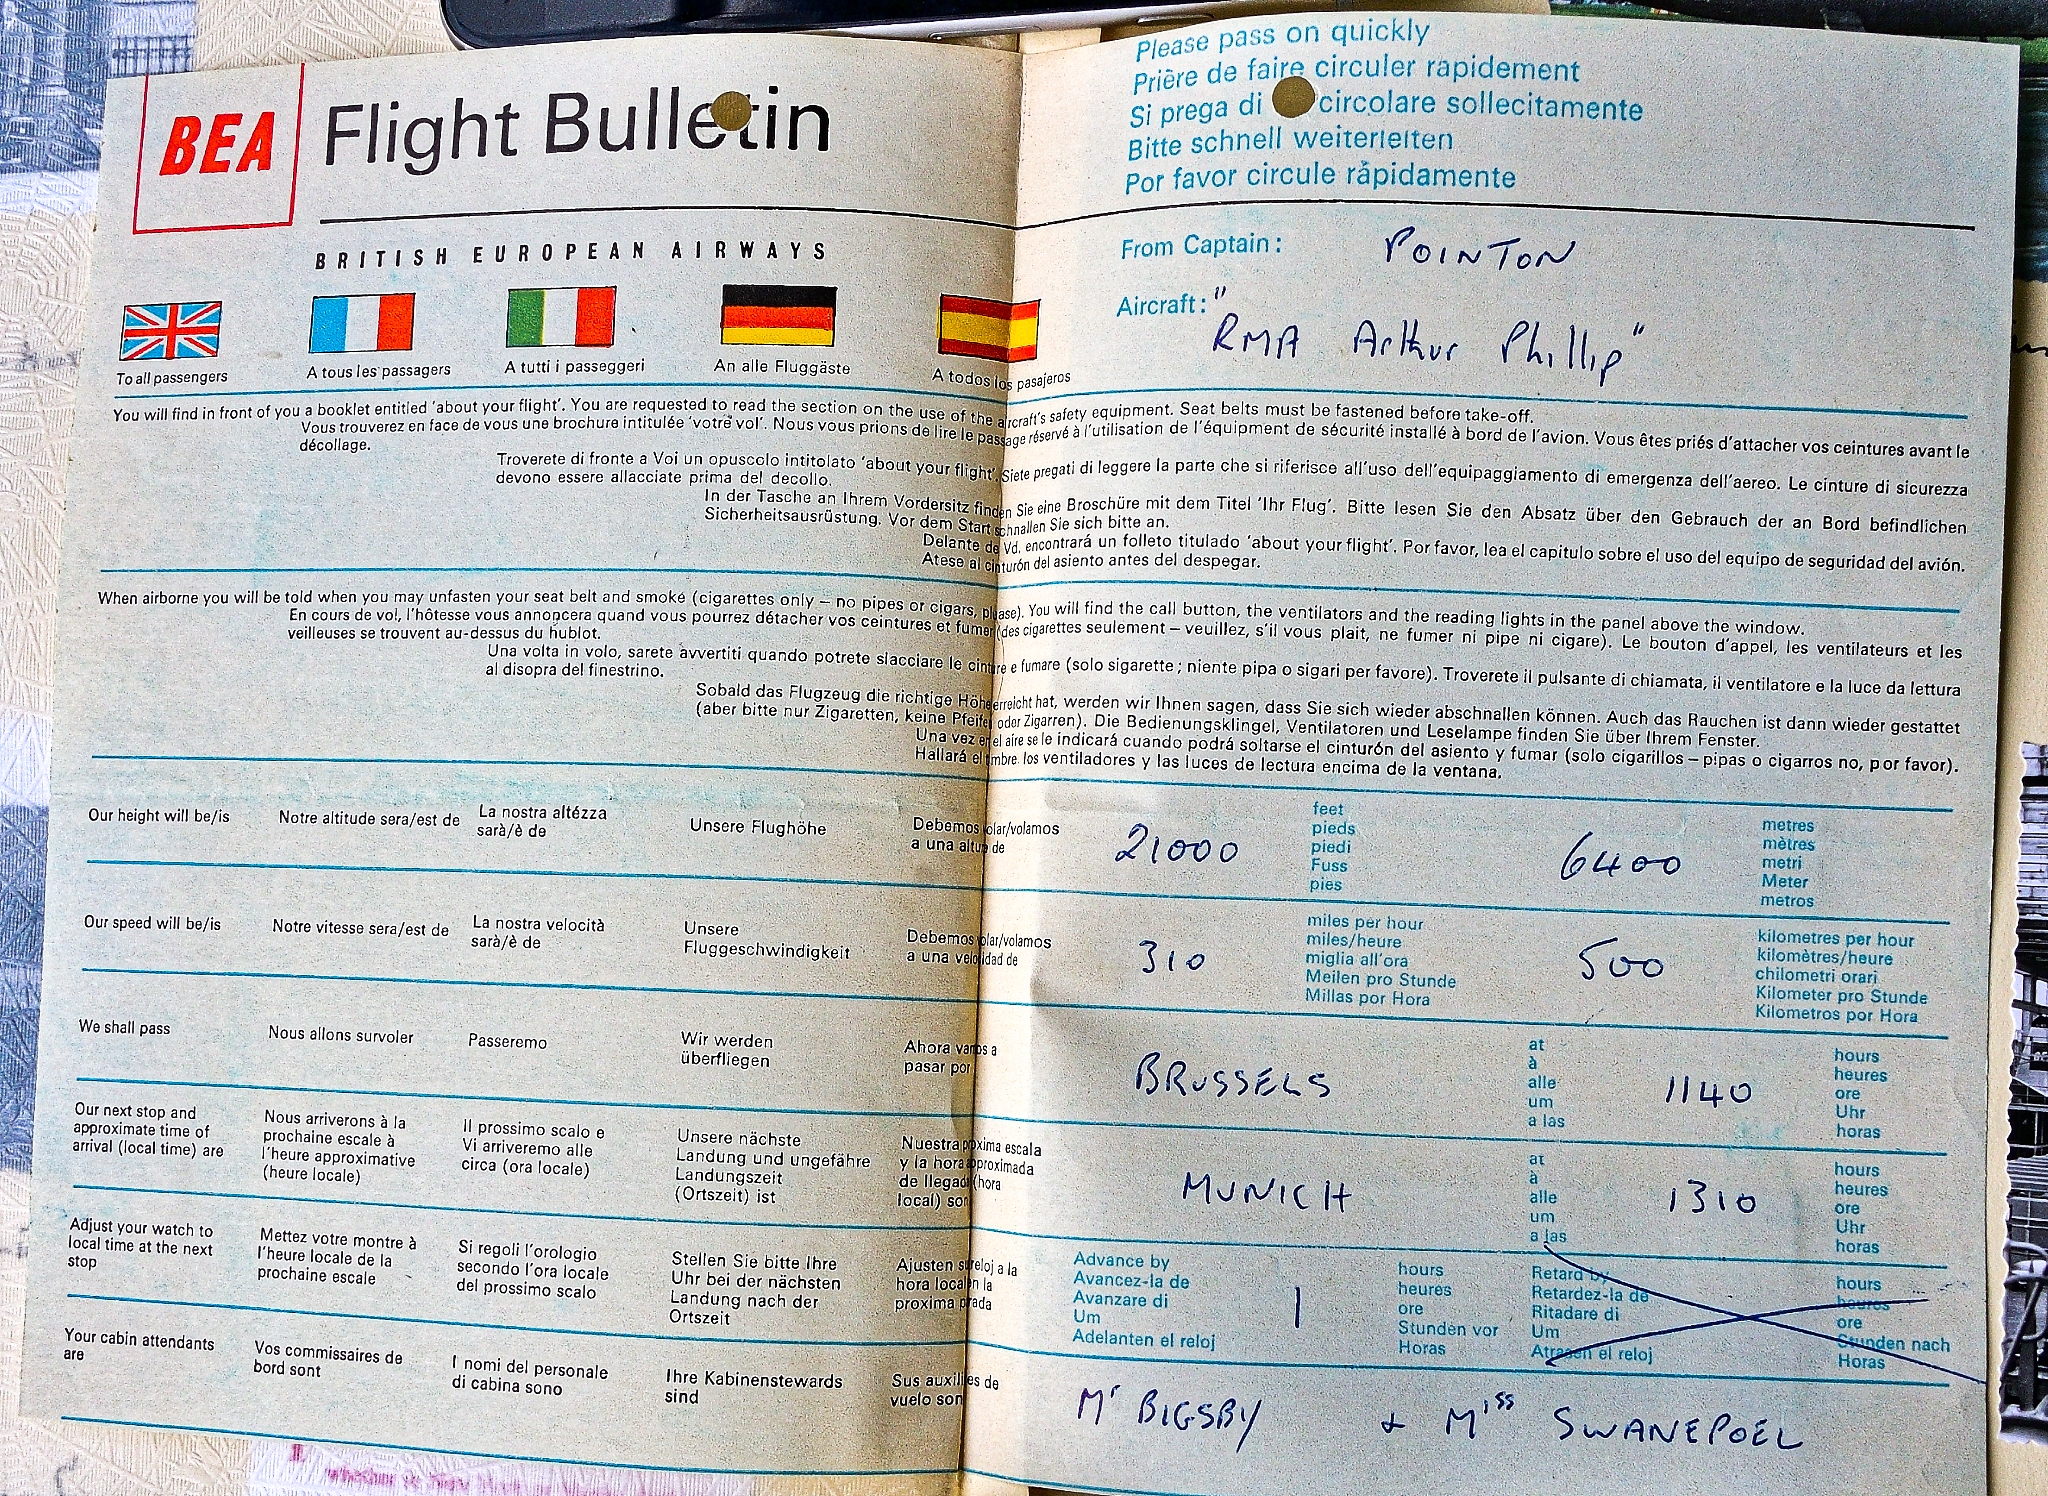 BEA Flight Bulletin
BRITISH EUROPEAN AIRWAYS
To all passengers
A tous les passagers
A tutti i passeggeri
An alle Fluggäste
A todos los pasajeros
Please pass on quickly
Prière de faire circuler rapidement
Si prega di circolare sollecitamente
Bitte schnell weiterleiten
Por favor circule rápidamente
From Captain: POINTON
Aircraft: "RMA Arthur Phillip"
You will find in front of you a booklet entitled 'about your flight'. You are requested to read the section on the use of the aircraft's safety equipment. Seat belts must be fastened before take-off.
Vous trouverez en face de vous une brochure intitulée 'votre vol'. Nous vous prions de lire le passage réservé à l'utilisation de l'équipment de sécurité installé à bord de l'avion. Vous êtes priés d'attacher vos ceintures avant le
décollage.
Troverete di fronte a Voi un opuscolo intitolato 'about your flight'. Siete pregati di leggere la parte che si riferisce all'uso dell'equipaggiamento di emergenza dell'aereo. Le cinture di sicurezza
devono essere allacciate prima del decollo.
In der Tasche an Ihrem Vordersitz finden Sie eine Broschüre mit dem Titel 'Ihr Flug'. Bitte lesen Sie den Absatz über den Gebrauch der an Bord befindlichen
Sicherheitsausrüstung. Vor dem Start schnallen Sie sich bitte an.
Delante de Vd. encontrará un folleto titulado 'about your flight'. Por favor, lea el capitulo sobre el uso del equipo de seguridad del avión.
Atese al cinturón del asiento antes del despegar.
When airborne you will be told when you may unfasten your seat belt and smoke (cigarettes only – no pipes or cigars, please). You will find the call button, the ventilators and the reading lights in the panel above the window.
En cours de vol, l'hôtesse vous annoncera quand vous pourrez détacher vos ceintures et fumer (des cigarettes seulement – veuillez, s'il vous plait, ne fumer ni pipe ni cigare). Le bouton d'appel, les ventilateurs et les
veilleuses se trouvent au-dessus du hublot.
Una volta in volo, sarete avvertiti quando potrete slacciare le cinture e fumare (solo sigarette; niente pipa o sigari per favore). Troverete il pulsante di chiamata, il ventilatore e la luce da lettura
al disopra del finestrino.
Sobald das Flugzeug die richtige Höhe erreicht hat, werden wir Ihnen sagen, dass Sie sich wieder abschnallen können. Auch das Rauchen ist dann wieder gestattet
(aber bitte nur Zigaretten, keine Pfeifen oder Zigarren). Die Bedienungsklingel, Ventilatoren und Leselampe finden Sie über Ihrem Fenster.
Una vez en el aire se le indicará cuando podrá soltarse el cinturón del asiento y fumar (solo cigarillos – pipas o cigarros no, por favor).
Hallará el timbre, los ventiladores y las luces de lectura encima de la ventana.
Our height will be/is
Notre altitude sera/est de
La nostra altézza
sarà/è de
Unsere Flughöhe
Debemos volar/volamos
a una altura de
21000
feet
pieds
piedi
Fuss
pies
6400
metres
mètres
metri
Meter
metros
Our speed will be/is
Notre vitesse sera/est de
La nostra velocità
sarà/è de
Unsere
Fluggeschwindigkeit
Debemos volar/volamos
a una velocidad de
310
miles per hour
miles/heure
miglia all'ora
Meilen pro Stunde
Millas por Hora
500
kilometres per hour
kilomètres/heure
chilometri orari
Kilometer pro Stunde
Kilometros por Hora
We shall pass
Nous allons survoler
Passeremo
Wir werden
überfliegen
Ahora vamos a
pasar por
BRUSSELS
at
à
alle
um
a las
1140
hours
heures
ore
Uhr
horas
Our next stop and
approximate time of
arrival (local time) are
Nous arriverons à la
prochaine escale à
l'heure approximative
(heure locale)
Il prossimo scalo e
Vi arriveremo alle
circa (ora locale)
Unsere nächste
Landung und ungefähre
Landungszeit
(Ortszeit) ist
Nuestra proxima escala
y la hora approximada
de llegada (hora
local) son
MUNICH
at
à
alle
um
a las
1310
hours
heures
ore
Uhr
horas
Adjust your watch to
local time at the next
stop
Mettez votre montre à
l'heure locale de la
prochaine escale
Si regoli l'orologio
secondo l'ora locale
del prossimo scalo
Stellen Sie bitte Ihre
Uhr bei der nächsten
Landung nach der
Ortszeit
Ajusten su reloj a la
hora local en la
proxima parada
Advance by
Avancez-la de
Avanzare di
Um
Adelanten el reloj
1
hours
heures
ore
Stunden vor
Horas
Retard by
Retardez-la de
Ritadare di
Um
Atrasen el reloj
hours
heures
ore
Stunden nach
Horas
Your cabin attendants
are
Vos commissaires de
bord sont
I nomi del personale
di cabina sono
Ihre Kabinenstewards
sind
Sus auxiliares de
vuelo son
Mr BIGSBY & Miss SWANEPOEL